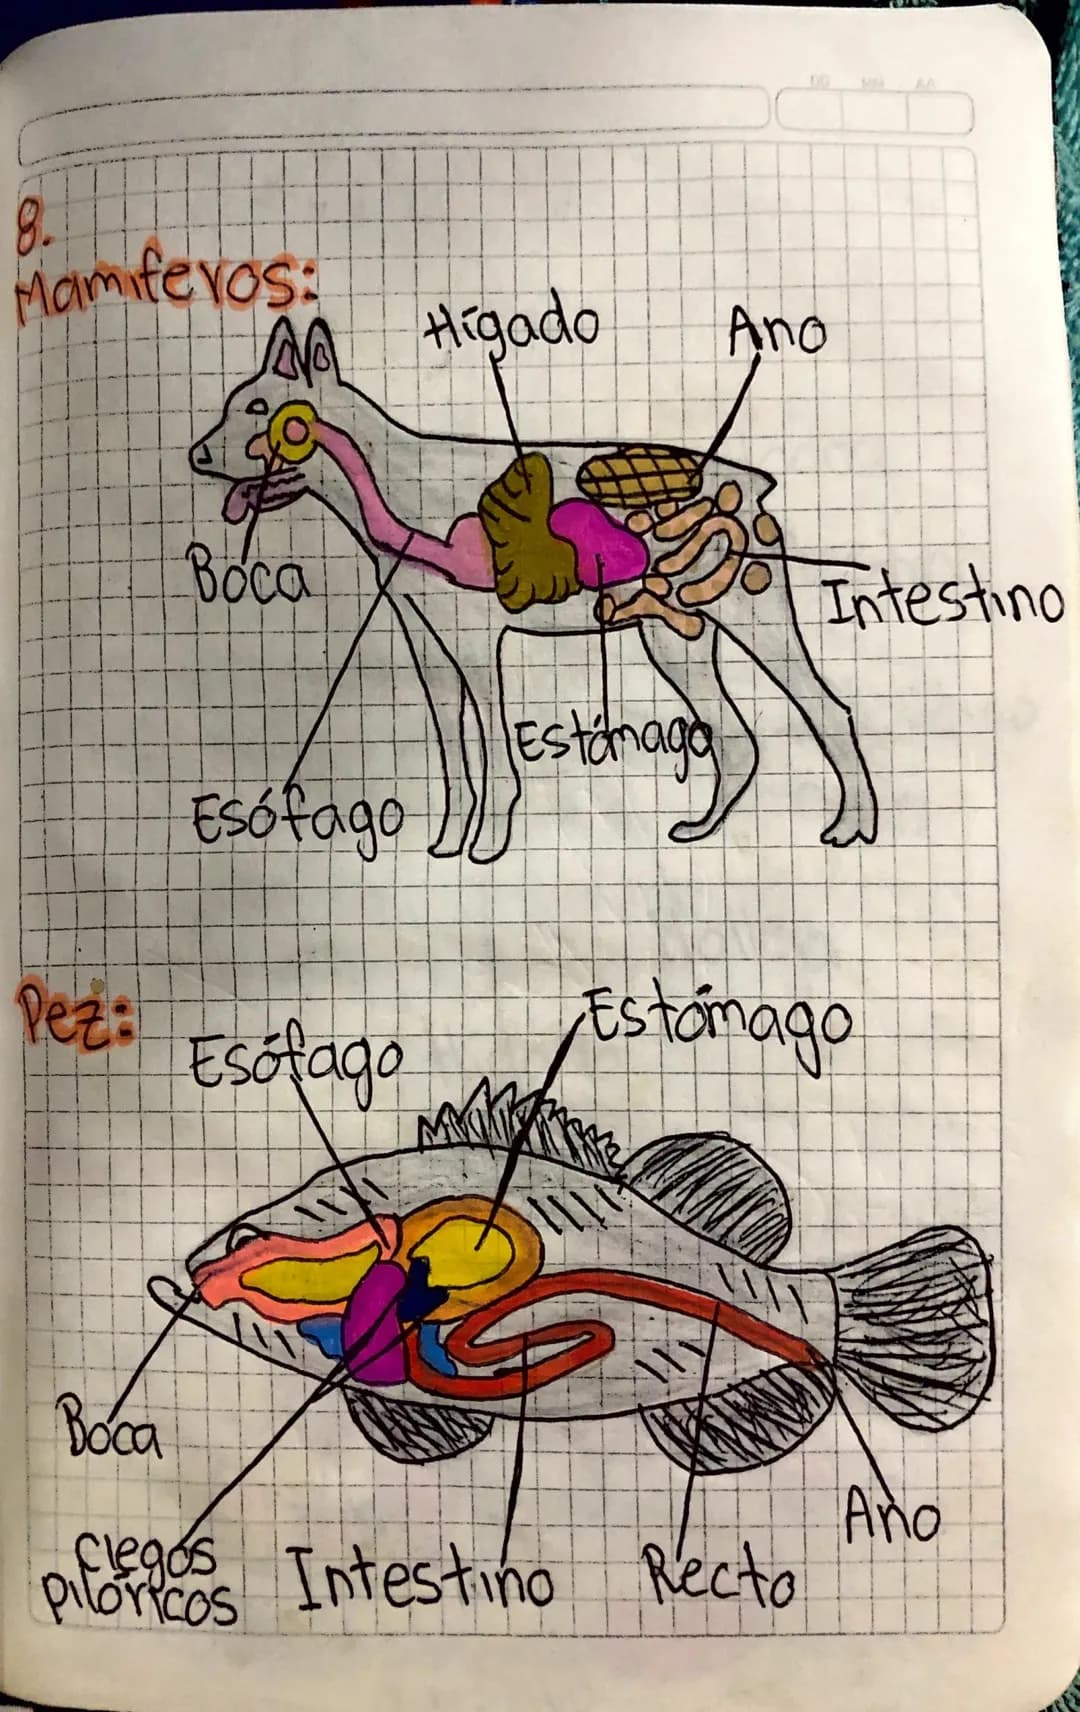 8.
Mamiferos:
Hígado
Ano
Boca
Intestino
Estómago
Esófago
Pez:
Estómago
Esófago
Boca
Ano
Ciegos
Pilóricos
Intestino
Recto